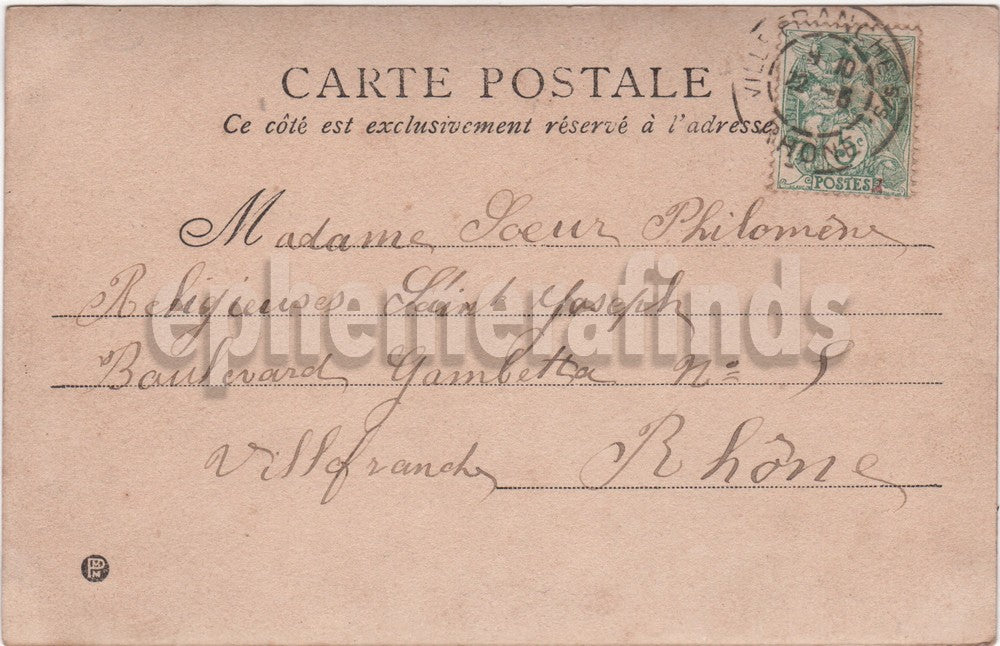 CARTE POSTALE
Ce côté est exclusivement réservé à l'adresse
Madame Soeur Philomène
Religieuses Saint Joseph
a Boulevard Gambetta N= 5
Villefranche Rhône
VILLEFRANCHE S
9 10
12 -5
RHONE
5c
POSTES
ephemerafinds